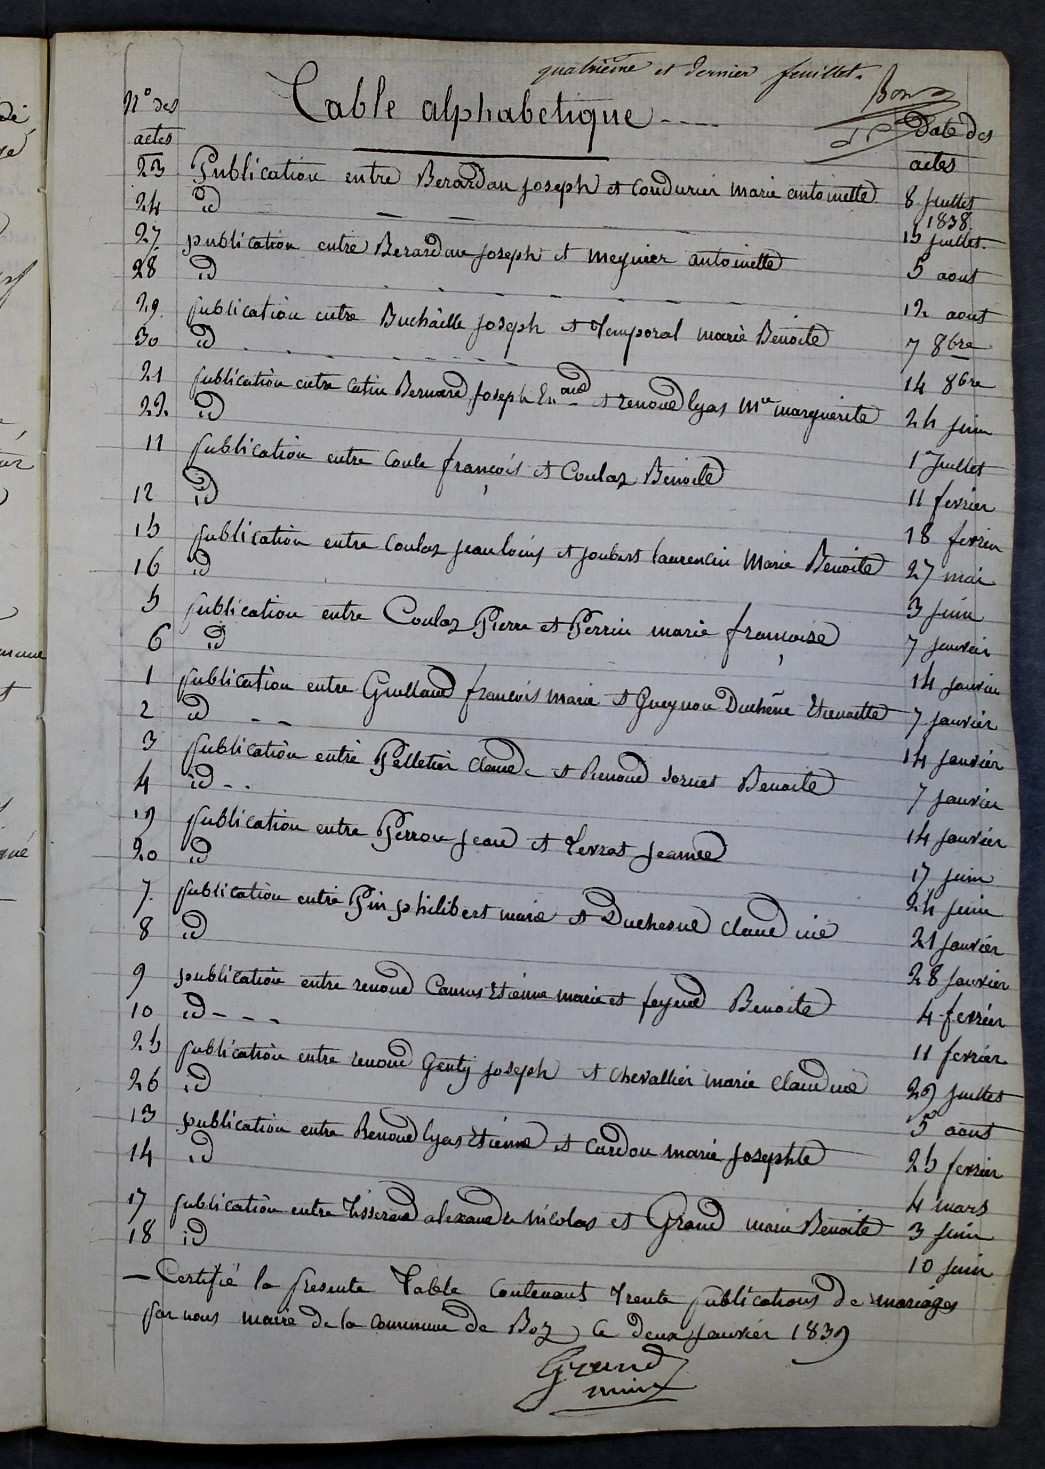 quatrième et dernier feuillet.
N° des actes
Table alphabetique
Date des actes
23 Publication entre Berardan joseph et Condurier marie antoinette 8 juillet 1838
24 id 15 juillet.
27 publication entre Berardan joseph et meynier antoinette 5 aout
28 id 12 aout
29 publication entre Buchaille joseph et Temporal marie Benoite 7 8bre
30 id 14 8bre
21 publication entre catin Bernard joseph et renoud lyas Mie marguerite 24 juin
22 id 1 Juillet
11 publication entre Coulas françois et Coulaz Benoite 11 fevrier
12 id 18 fevrier
15 publication entre Coulaz jean louis et joubert laurencin Marie Benoite 27 mai
16 id 3 juin
5 publication entre Coulaz Pierre et Perrin marie françoise 7 janvier
6 id 14 janvier
1 publication entre Guillaud francois marie et Gueynon Duchêne Etiennette 7 janvier
2 id 14 janvier
3 publication entre Pelletier claude et Renoud sornet Benoite 7 janvier
4 id 14 janvier
19 publication entre Perron jean et Levrat jeanne 17 juin
20 id 24 juin
7 publication entre Pin philibert marie et Duchesne claudine 21 janvier
8 id 28 janvier
9 publication entre renoud Camus Etienne marie et feyeud Benoite 4 fevrier
10 id 11 fevrier
25 publication entre renoud Genty joseph et chevallier marie claudine 29 juillet
26 id 5 aout
13 publication entre Renoud lyas Etienne et Cardon marie josephte 25 fevrier
14 id 4 mars
17 publication entre Tisserand alexandre Nicolas et Grand marie Benoite 3 juin
18 id 10 juin
Certifié la presente Table Contenant Trente publications de mariages
par nous maire de la commune de Boz, le deux janvier 1839
Grand
maire